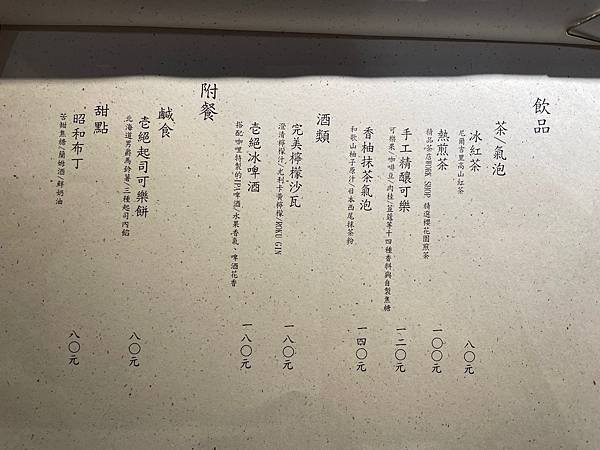 飲品
茶氣泡
冰紅茶
尼爾吉里高山紅茶
八〇元
熱煎茶
精品茶店WORK SHOP 精選櫻花園煎茶
一〇〇元
手工精釀可樂
可樂果/咖啡豆/肉桂/荳蔻等十四種香料與自製焦糖
一二〇元
香柚抹茶氣泡
和歌山柚子原汁/日本西尾抹茶粉
一四〇元
酒類
完美檸檬沙瓦
澄清檸檬汁/尤利卡黃檸檬/ROKU GIN
一八〇元
壱絕冰啤酒
搭配咖哩特製的IPA啤酒/水果香氣、啤酒花香
一八〇元
附餐
鹹食
壱絕起司可樂餅
北海道男爵馬鈴薯/三種起司內餡
八〇元
甜點
昭和布丁
苦甜焦糖/蘭姆酒/鮮奶油
八〇元